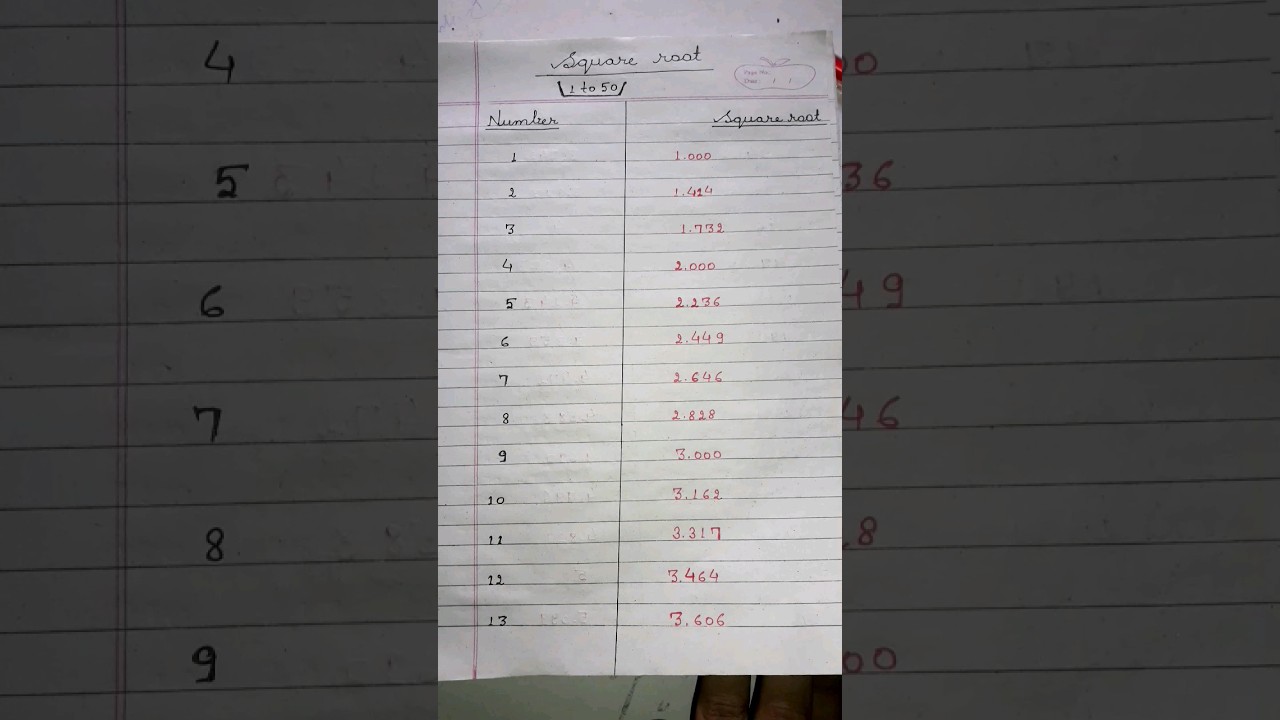 Square root
1 to 50
Page No.
Date: / /
Number Square root
1 1.000
2 1.424
3 1.732
4 2.000
5 2.236
6 2.449
7 2.646
8 2.828
9 3.000
10 3.162
11 3.317
12 3.464
13 3.606
4
5
6
7
8
9
0
36
49
46
8
00